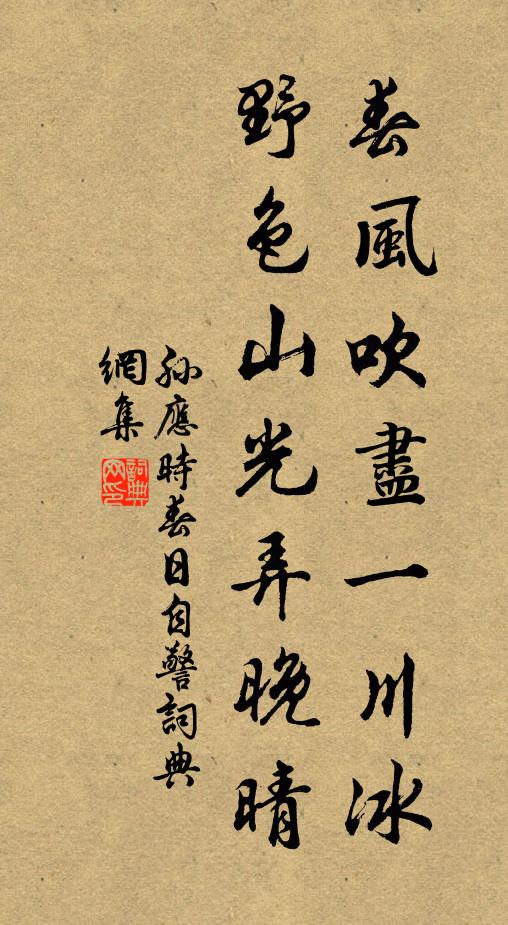 春風吹盡一川冰
野色山光弄晚晴
孫應時春日自警詞典
網集
詞典
网印